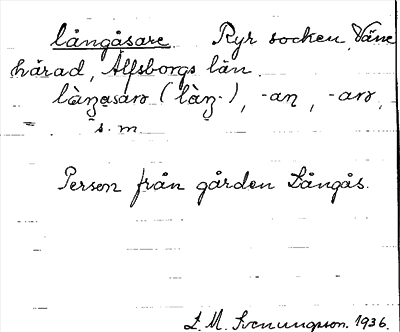 långåsare Ryr socken, Väne
härad, Älfsborgs län.
làŋasar (làŋ-), -aṇ, -ar,
s. m.
Person från gården Långås.
L. M. Svenungsson. 1936.